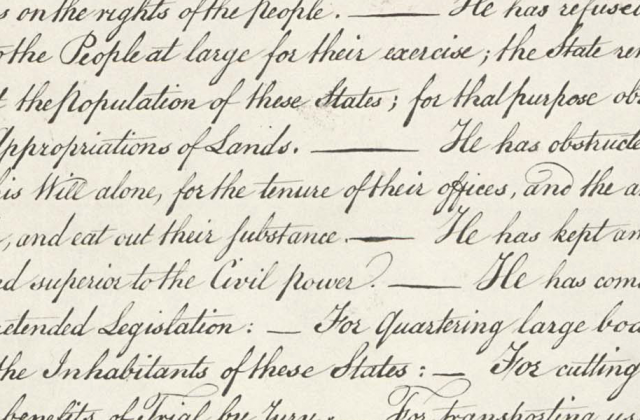 s on the rights of the people. — He has refused
o the People at large for their exercise; the State rem
t the population of these States; for that purpose obs
Appropriations of Lands. — He has obstructe
his Will alone, for the tenure of their offices, and the a
, and eat out their substance. — He has kept am
nd superior to the Civil power. — He has com
retended Legislation: — For Quartering large bod
the Inhabitants of these States: — For cutting
benefits of Trial by Jury. For transporting us